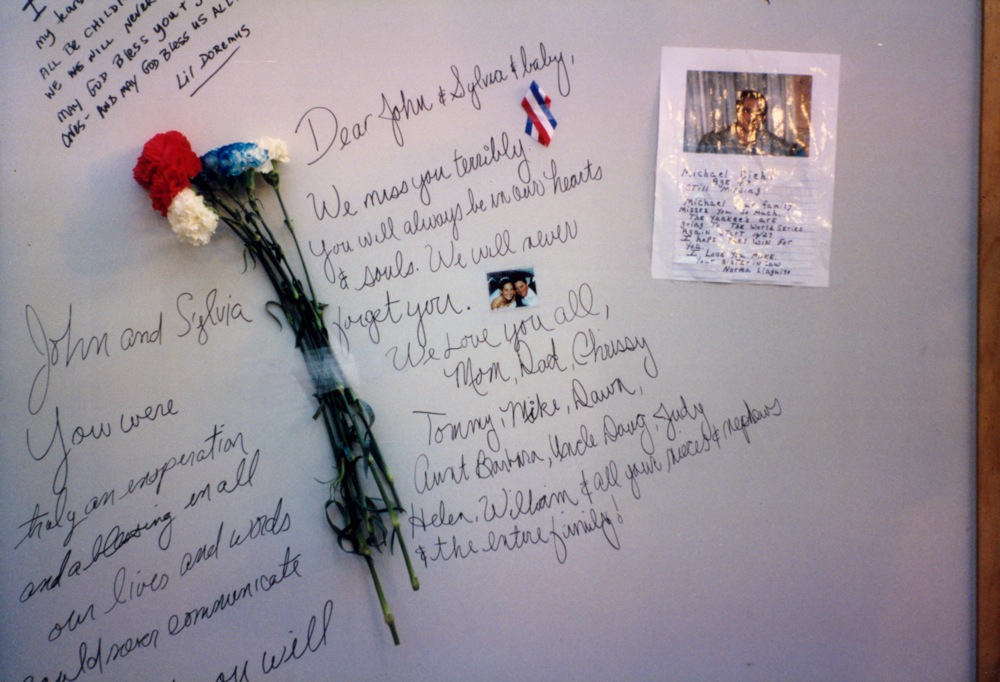 I
my
ALL BE CHILD
WE WILL NEVER
MAY GOD BLESS YOU +
ONES - AND MAY GOD BLESS US ALL.
Lil DOREMUS
Dear John & Sylvia & baby,
We miss you terribly.
You will always be in our hearts
& souls. We will never
forget you.
We Love you all,
Mom, Dad, Chrissy
Tommy, Mike, Dawn,
Aunt Barbara, Uncle Doug, Judy
Helen, William & all your nieces & nephews
& the entire family!
John and Sylvia
You were
truly an insperation
and a blessing in all
our lives and words
could never communicate
you will
Michael
Age
Still Missing
Michael your family
Misses you so much.
The Yankees are
going to The World Series
Again start 10/27
I hope they win for
you.
I Love you Mike.
Your Sister in Law
Norma